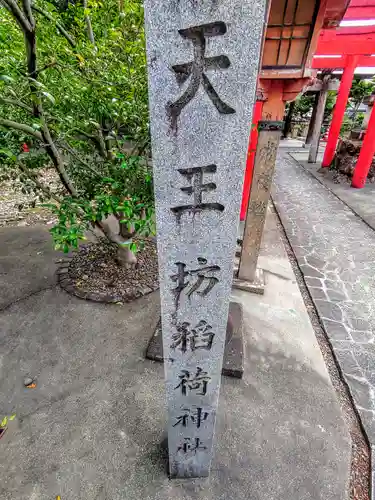 天王坊稲荷神社